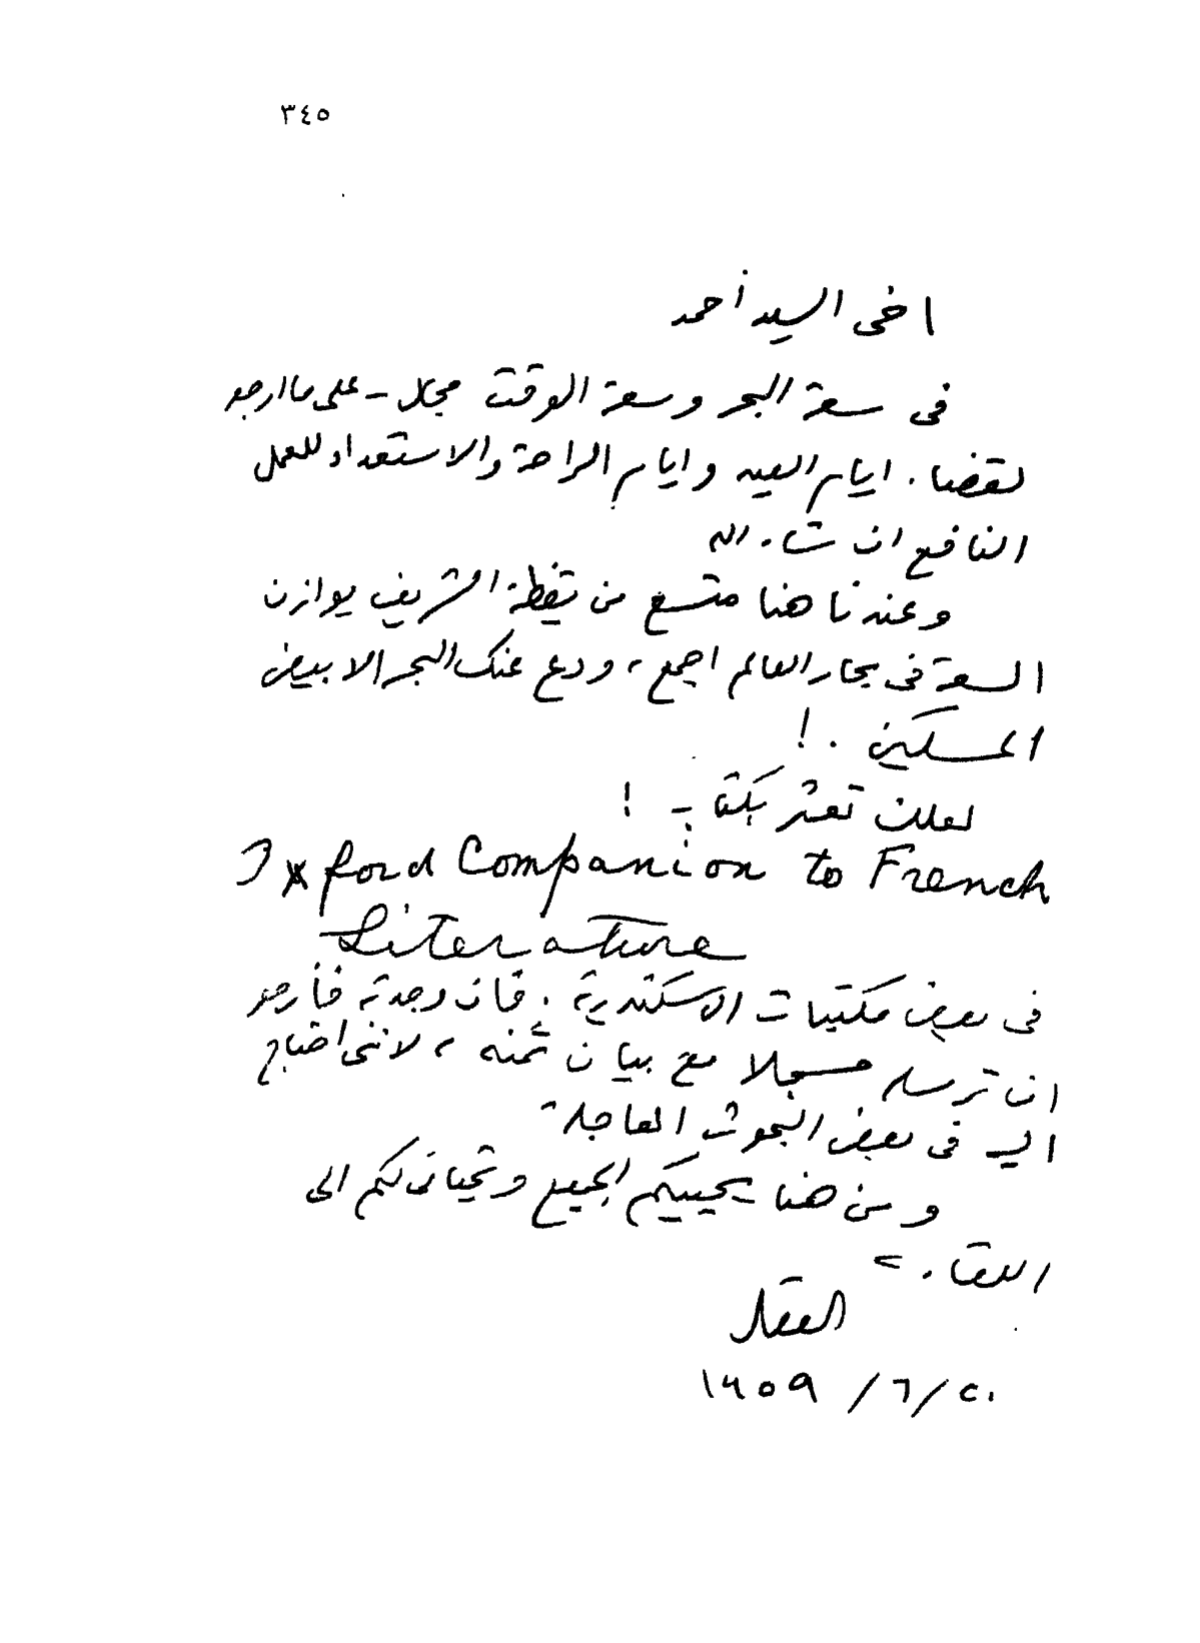 ٣٤٥
اخى السيد أحمد
فى سعة البحر وسعة الوقت مجال - على ما ارجو
لقضاء ايام العيد وايام الراحة والاستعداد للعمل
النافع ان شاء الله
وعندنا هنا متسع من يقظة الشريف يوازن
السعة فى بحار العالم اجمع، ودع عنك البحر الابيض
المسكين . !
لعلك تعثر بكتاب !
Oxford Companion to French
Literature
فى بعض مكتبات الاسكندرية . فان وجدته فأرجو
ان ترسله مسجلا مع بيان ثمنه ، لاننى احتاج
اليه فى بعض البحوث العاجلة
ومن هنا يحييكم الجميع وتحياتى لكم الى
اللقاء
العقاد
٢٠/٦/١٩٥٩